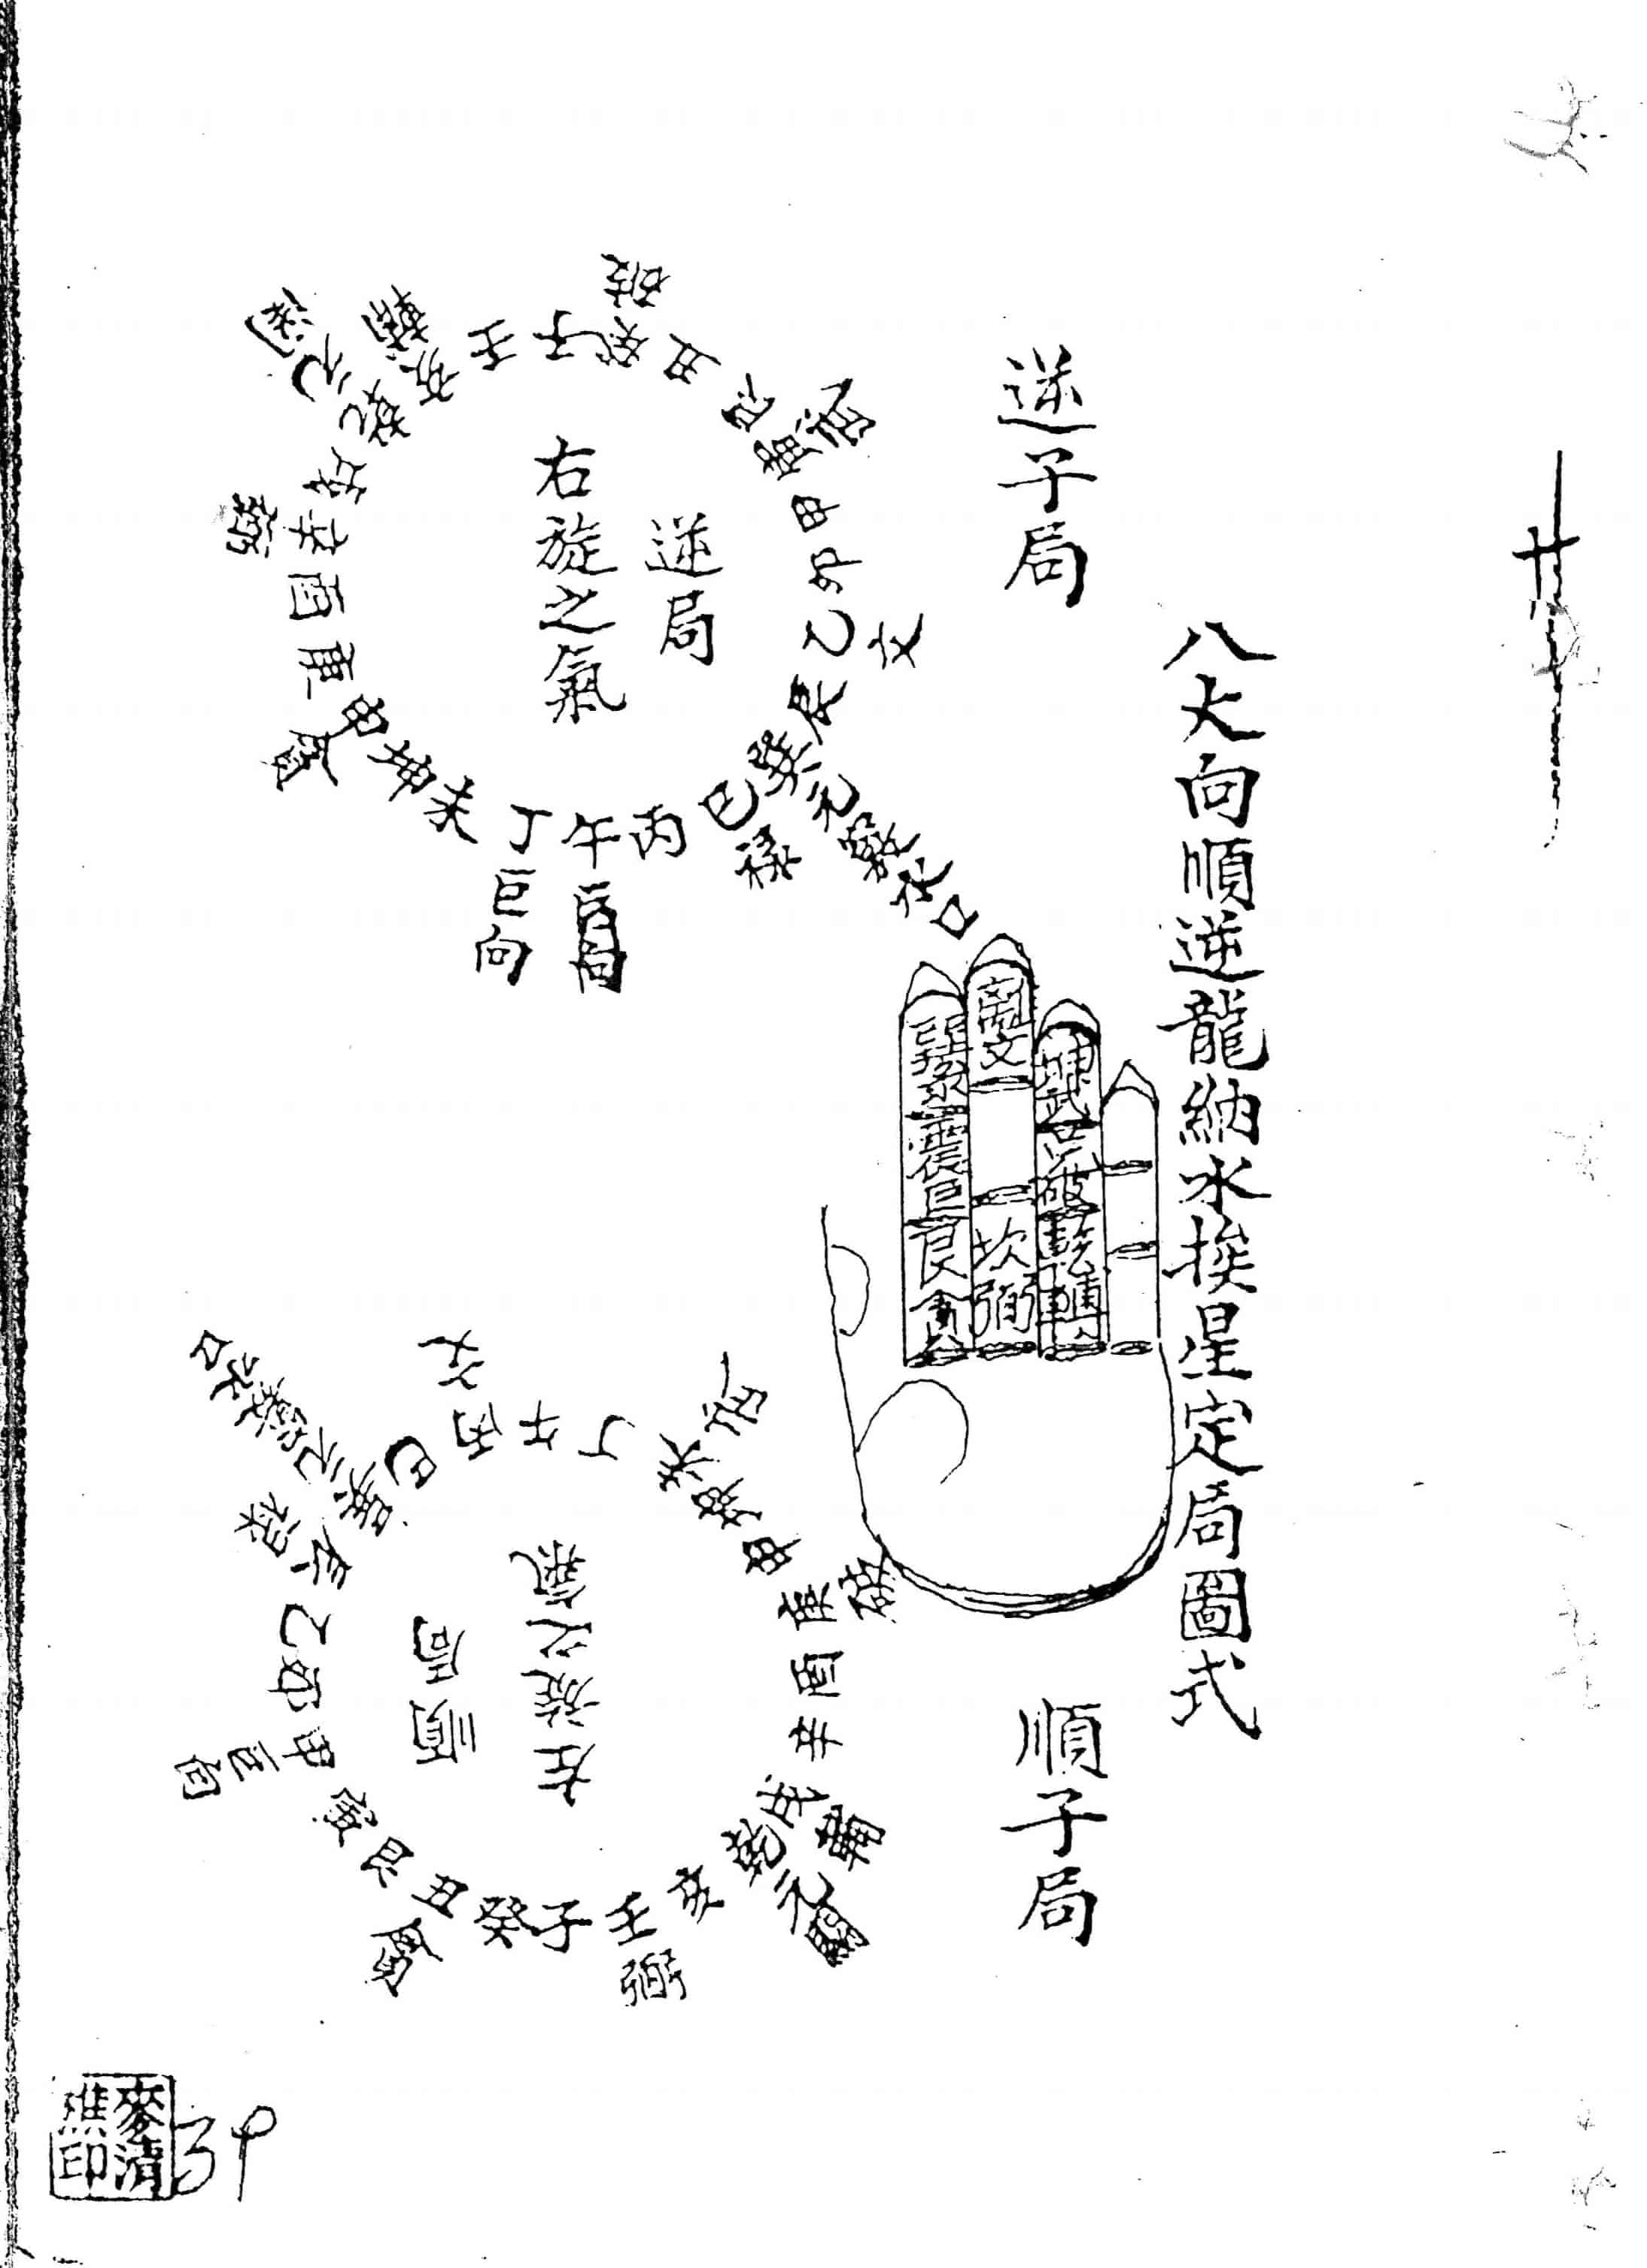 八大向順逆龍納水挨星定局圖式
逆子局
順子局
逆局
右旋之氣
子
癸
丑
艮
寅
甲
卯
乙
辰
巽
巳
丙
午
丁
未
坤
申
庚
酉
辛
戌
乾
亥
壬
破
文
祿
巨向
元
水口
武
巽
震巨
艮貪
離文
坎弼
坤武
兌破
乾輔
順局
左旋之氣
丙
午
丁
未
坤
申
庚
酉
辛
戌
乾
亥
壬
子
癸
丑
艮
寅
甲
卯
乙
辰
巽
巳
文
武
破
輔
弼
貪
巨向
祿
元
水口
麥清
印
39